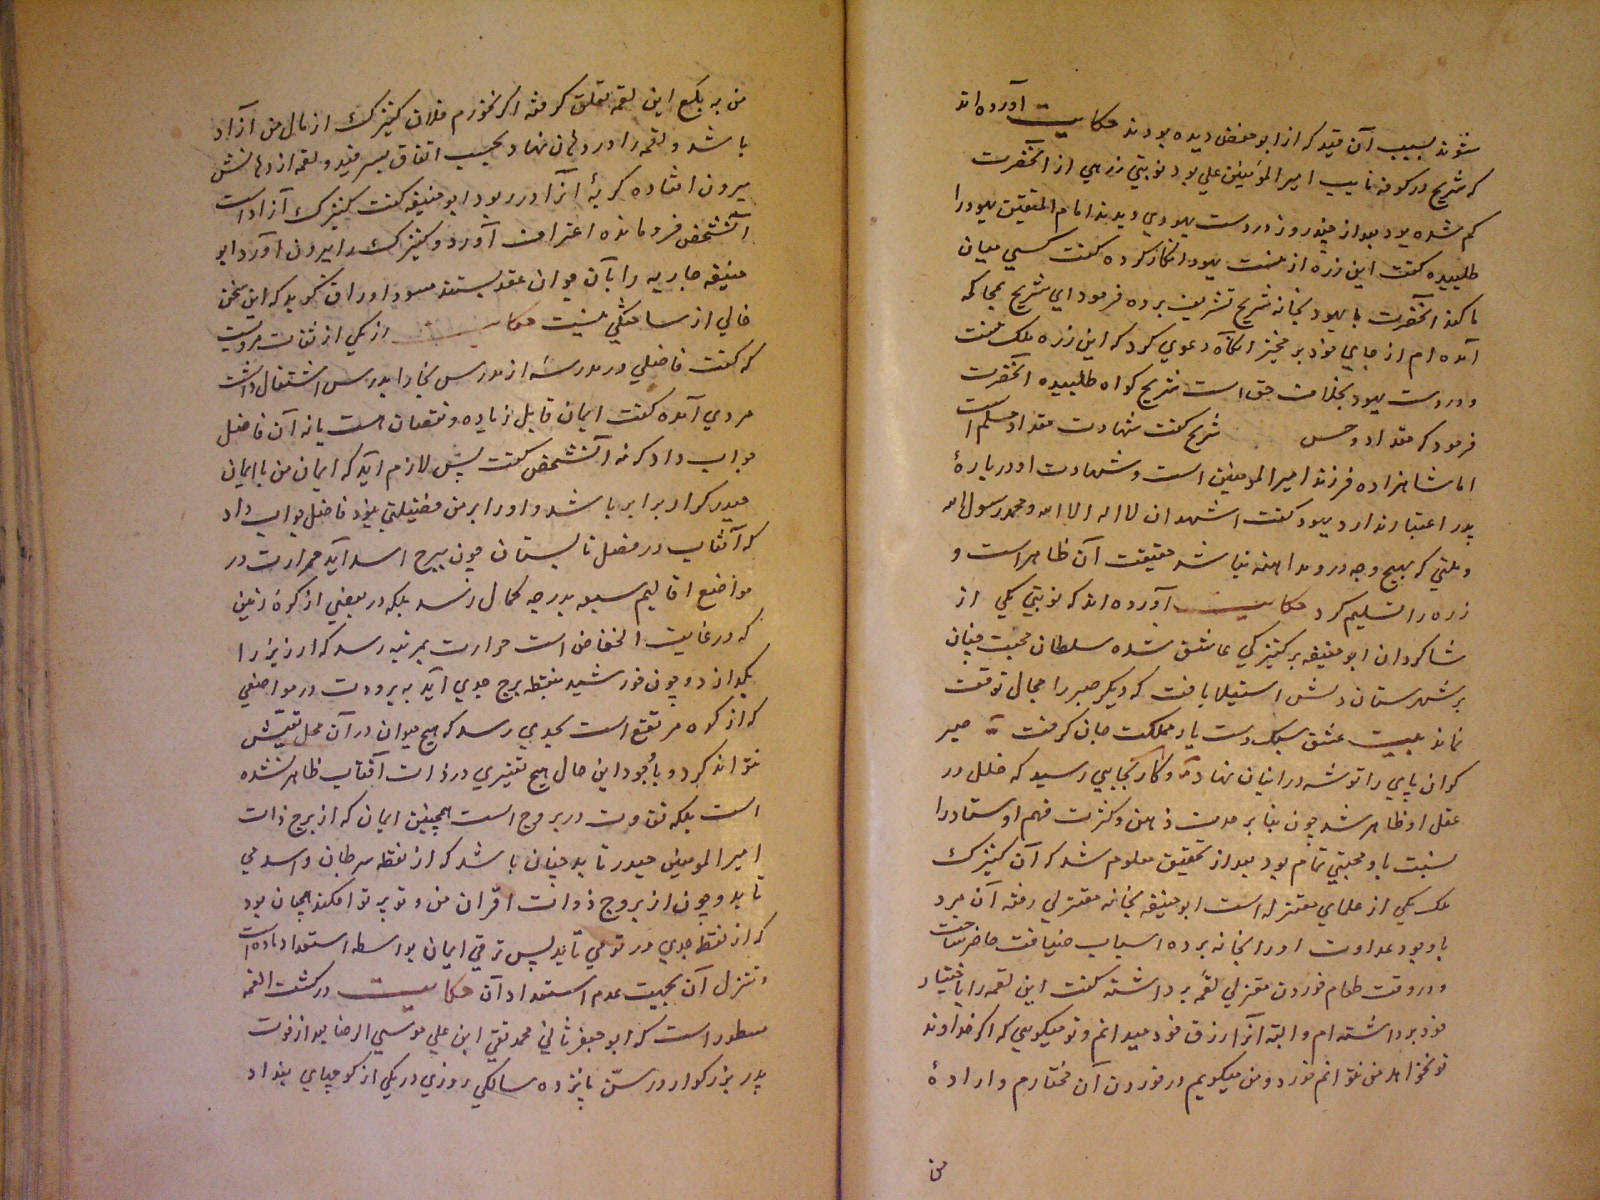 شوند بسبب آن قید که از ابوحفص دیده بودند حکایت آورده اند
که شریح در کوفه نایب امیر المؤمنین علی بود نوبتی زرهی از آنحضرت
کم شده بود بعد از چند روز در دست یهودی دیدند امام المتقین یهود را
طلبیده کفت این زره از منست یهود انکار کرده کفت کسی میان
ما کند آنحضرت با یهود بخانه شریح تشریف برده فرمود ای شریح بمحاکمه
آمده ام از جای خود بر مخیز آنکاه دعوی کرد که این زره ملک منست
و در دست یهود بخلاف حق است شریح کواه طلبیده آنحضرت
فرمود که مقداد و حسن شریح کفت شهادت مقداد مسلم است
اما شاهزاده فرزند امیر المومنین است و شهادت او در بارهٔ
پدر اعتبار ندارد یهود کفت اشهد ان لا اله الا الله و محمد رسول الله
و ملتی که بهیچ وجه در و مداهنه نباشد حقیقت آن ظاهر است و
زره را تسلیم کرد حکایت آورده اند که نوبتی یکی از
شاکردان ابوحنیفه بر کنیزکی عاشق شده سلطان محبت چنان
بر شهرستان دلش استیلا یافت که دیکر صبر را مجال توقف
نماند بیت عشق سبک دست یاد مملکت جان کرفت صبر
کران پای را توشه در انبان نهاد و کار بجایی رسید که خلل در
عقل او ظاهر شد چون بنا بر حدت ذهن و کثرت فهم اوستاد را
نسبت باو محبتی تمام بود بعد از تحقیق معلوم شد که آن کنیزک
ملک یکی از علمای معتزله است ابوحنیفه بخانه معتزلی رفته آن مرد
با وجود عداوت او را بخانه برده اسباب ضیافت حاضر ساخت
و در وقت طعام خوردن معتزلی لقمه برداشته کفت این لقمه را باختیار
خود برداشته ام و البته آنرا رزق خود میدانم و تو میکویی که اکر خداوند
تو نخواهد من نتوانم خورد و من میکویم در خوردن آن مختارم و ارادهٔ
من
من به بلع این لقمه تعلق کرفته اکر نخورم فلان کنیزک از مال من آزاد
باشد و لقمه را در دهان نهاد بحسب اتفاق بسرفید و لقمه از دهانش
بیرون افتاده کربهٔ آنرا در ربود ابوحنیفه کفت کنیزک آزاد است
آنشخص فرو مانده اعتراف آورد و کنیزک را بیرون آورد ابو
حنیفه جاریه را بآن جوان عقد بستند مسود اوراق کوید که این سخن
خالی از سامتکی نیست حکایت از یکی از ثقات مرویست
که کفت فاضلی در مدرسهٔ از مدارس بخارا بدرس اشتغال داشت
مردی آمده کفت ایمان قابل زیاده و نقصان هست یا نه آن فاضل
جواب داد که نه آنشخص کفت پس لازم آید که ایمان من با ایمان
حیدر کرار برابر باشد و او را بر من فضیلتی نبود فاضل جواب داد
که آفتاب در فصل تابستان چون ببرج اسد آید حرارت در
مواضع اقالیم سبعه بدرجه کمال رسد بلکه در بعضی از کرهٔ زمین
که در غایت انخفاض است حرارت بمرتبه رسد که ارزیز را
بکدازد و چون خورشید بنقطه برج جدی آید برودت در مواضعی
که از کوه مرتفع است بحدی رسد که هیچ حیوان در آن محل تعیش
نتواند کرد و با وجود این حال هیچ تغییری در ذات آفتاب ظاهر نشده
است بلکه تفاوت در بروج است همچنین ایمان که از برج ذات
امیر المومنین حیدر تابد چنان باشد که از نقطه سرطان و اسد می
تابد و چون از بروج ذوات اقران من و تو پرتو افکند همچنان بود
که از نقطهٔ جدی در تو می تابد پس ترقی ایمان بواسطه استعداد ماده است
و تنزل آن بجهت عدم استعداد آن حکایت در کشف الغمه
مسطور است که ابوجعفر ثانی محمد تقی ابن علی موسی الرضا بعد از فوت
پدر بزرکوار در سن پانزده سالکی روزی در یکی از کوچهای بغداد